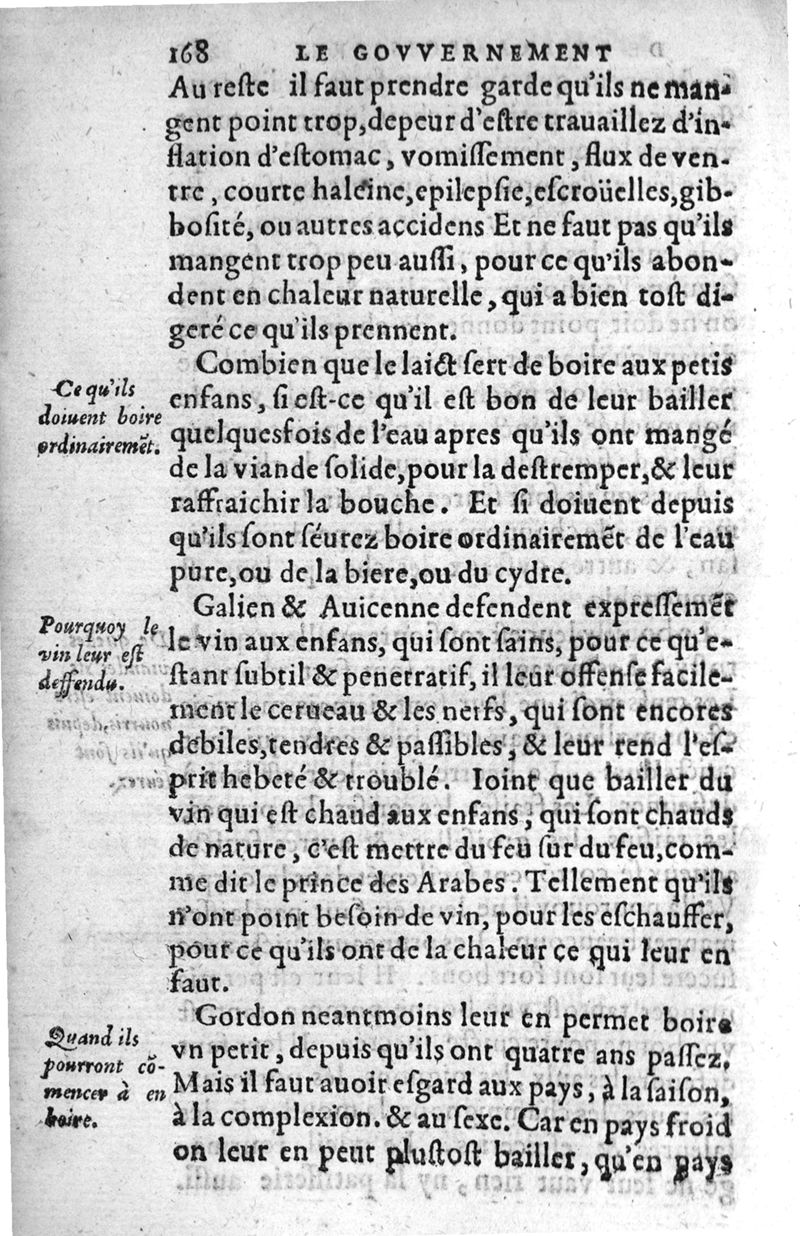 168 LE GOVVERNEMENT
Au reste il faut prendre garde qu'ils ne man-
gent point trop, depeur d'estre trauaillez d'in-
flation d'estomac, vomissement, flux de ven-
tre, courte haleine, epilepsie, escroüelles, gib-
bosité, ou autres accidens Et ne faut pas qu'ils
mangent trop peu aussi, pour ce qu'ils abon-
dent en chaleur naturelle, qui a bien tost di-
geré ce qu'ils prennent.
Combien que le laict sert de boire aux petis
Ce qu'ils
doiuent boire
ordinairemēt.
enfans, si est-ce qu'il est bon de leur bailler
quelquesfois de l'eau apres qu'ils ont mangé
de la viande solide, pour la destremper, & leur
raffraichir la bouche. Et si doiuent depuis
qu'ils sont séurez boire ordinairemēt de l'eau
pure, ou de la biere, ou du cydre.
Galien & Auicenne defendent expressemēt
Pourquoy le
vin leur est
deffendu.
le vin aux enfans, qui sont sains, pour ce qu'e-
stant subtil & penetratif, il leur offense facile-
ment le cerueau & les nerfs, qui sont encores
debiles, tendres & passibles, & leur rend l'es-
prit hebeté & troublé. Ioint que bailler du
vin qui est chaud aux enfans, qui sont chauds
de nature, c'est mettre du feu sur du feu, com-
me dit le prince des Arabes. Tellement qu'ils
n'ont point besoin de vin, pour les eschauffer,
pour ce qu'ils ont de la chaleur ce qui leur en
faut.
Gordon neantmoins leur en permet boire
Quand ils
pourront cō-
mencer à en
boire.
vn petit, depuis qu'ils ont quatre ans passez.
Mais il faut auoir esgard aux pays, à la saison,
à la complexion. & au sexe. Car en pays froid
on leur en peut plustost bailler, qu'en pays